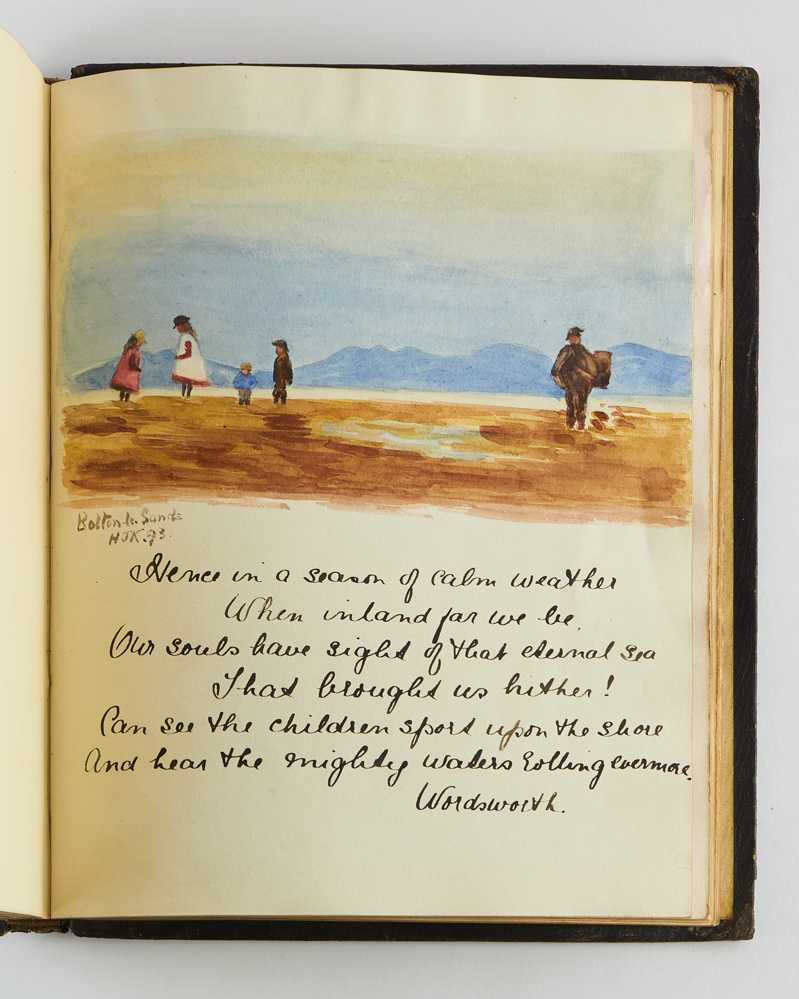 Bolton-le-Sands
HJK. 93.
Hence in a season of calm weather
When inland far we be,
Our souls have sight of that eternal sea
That brought us hither!
Can see the children sport upon the shore
And hear the mighty waters rolling evermore.
Wordsworth.